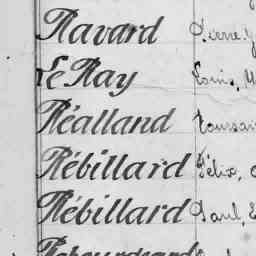 Ravard Pierre
Le Ray Louis, M
Réalland Toussai
Rébillard Félix,
Rébillard Paul, E